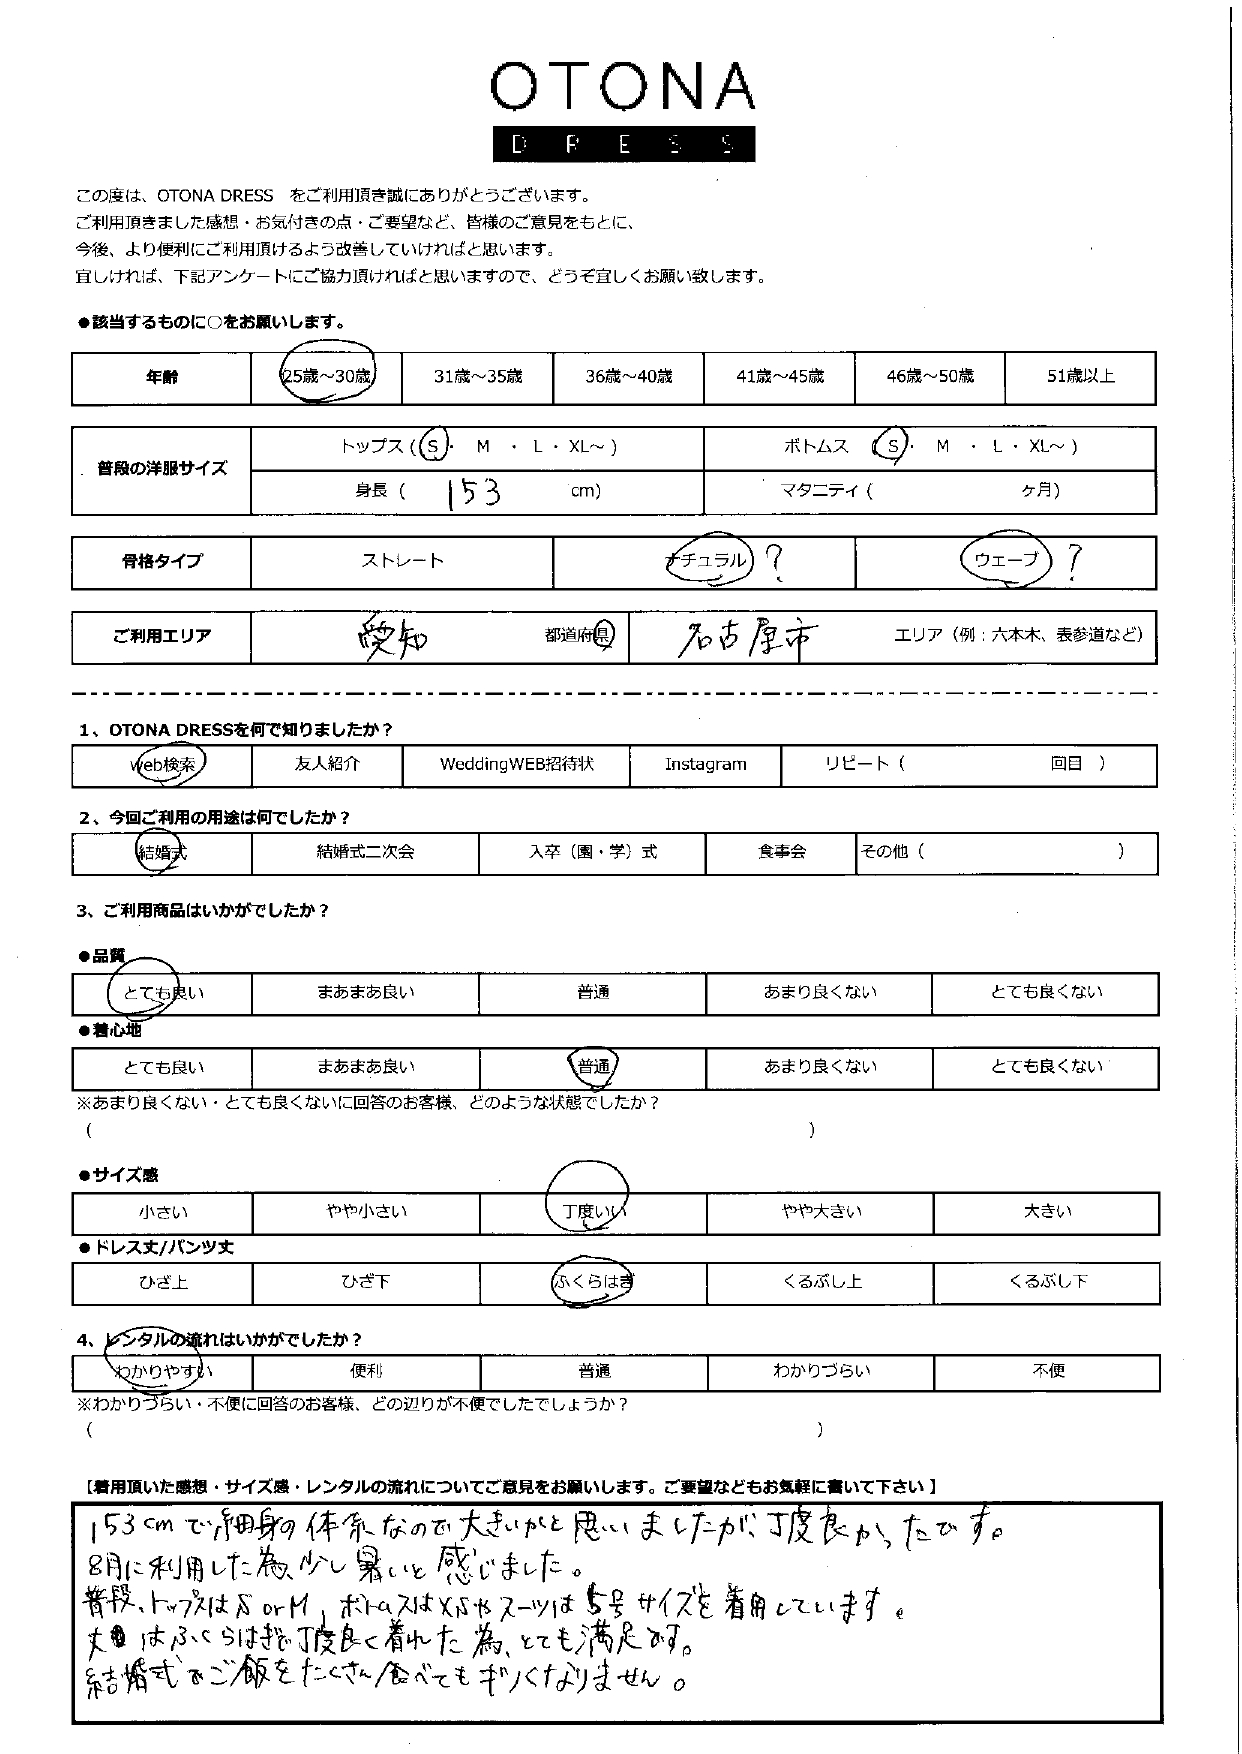 OTONA
DRESS
この度は、OTONA DRESS をご利用頂き誠にありがとうございます。
ご利用頂きました感想・お気付きの点・ご要望など、皆様のご意見をもとに、
今後、より便利にご利用頂けるよう改善していければと思います。
宜しければ、下記アンケートにご協力頂ければと思いますので、どうぞ宜しくお願い致します。
●該当するものに○をお願いします。
年齢 25歳～30歳 31歳～35歳 36歳～40歳 41歳～45歳 46歳～50歳 51歳以上
普段の洋服サイズ トップス（S・ M ・ L ・ XL～ ） ボトムス （S・ M ・ L ・ XL～ ）
身長（ 153 cm） マタニティ（ ヶ月）
骨格タイプ ストレート ナチュラル ? ウェーブ ?
ご利用エリア 愛知 都道府県 名古屋市 エリア（例：六本木、表参道など）
1、OTONA DRESSを何で知りましたか？
web検索 友人紹介 WeddingWEB招待状 Instagram リピート（ 回目 ）
2、今回ご利用の用途は何でしたか？
結婚式 結婚式二次会 入卒（園・学）式 食事会 その他（ ）
3、ご利用商品はいかがでしたか？
●品質
とても良い まあまあ良い 普通 あまり良くない とても良くない
●着心地
とても良い まあまあ良い 普通 あまり良くない とても良くない
※あまり良くない・とても良くないに回答のお客様、どのような状態でしたか？
（ ）
●サイズ感
小さい やや小さい 丁度いい やや大きい 大きい
●ドレス丈/パンツ丈
ひざ上 ひざ下 ふくらはぎ くるぶし上 くるぶし下
4、レンタルの流れはいかがでしたか？
わかりやすい 便利 普通 わかりづらい 不便
※わかりづらい・不便に回答のお客様、どの辺りが不便でしたでしょうか？
（ ）
【着用頂いた感想・サイズ感・レンタルの流れについてご意見をお願いします。ご要望などもお気軽に書いて下さい】
153cmで、細身の体系なので大きいかと思いましたが、丁度良かったです。
8月に利用した為、少し暑いと感じました。
普段、トップスはS or M、ボトムスはXSやスーツは5号サイズを着用しています。
丈はふくらはぎで丁度良く着れた為、とても満足です。
結婚式でご飯をたくさん食べてもキツくなりません。